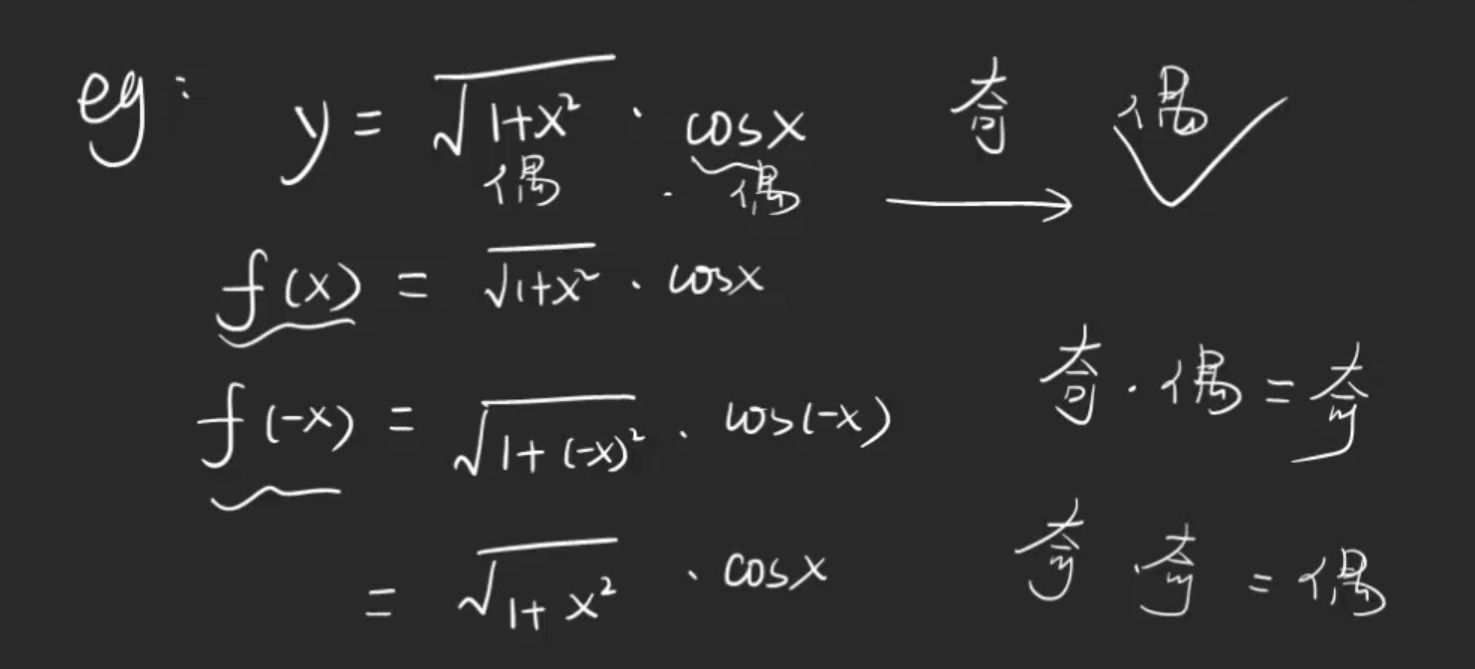 eg: y = √(1+x²) · cosx 奇 偶
偶 · 偶 →
f(x) = √(1+x²) · cosx
f(-x) = √(1+(-x)²) · cos(-x)
奇 · 偶 = 奇
= √(1+x²) · cosx
奇 · 奇 = 偶